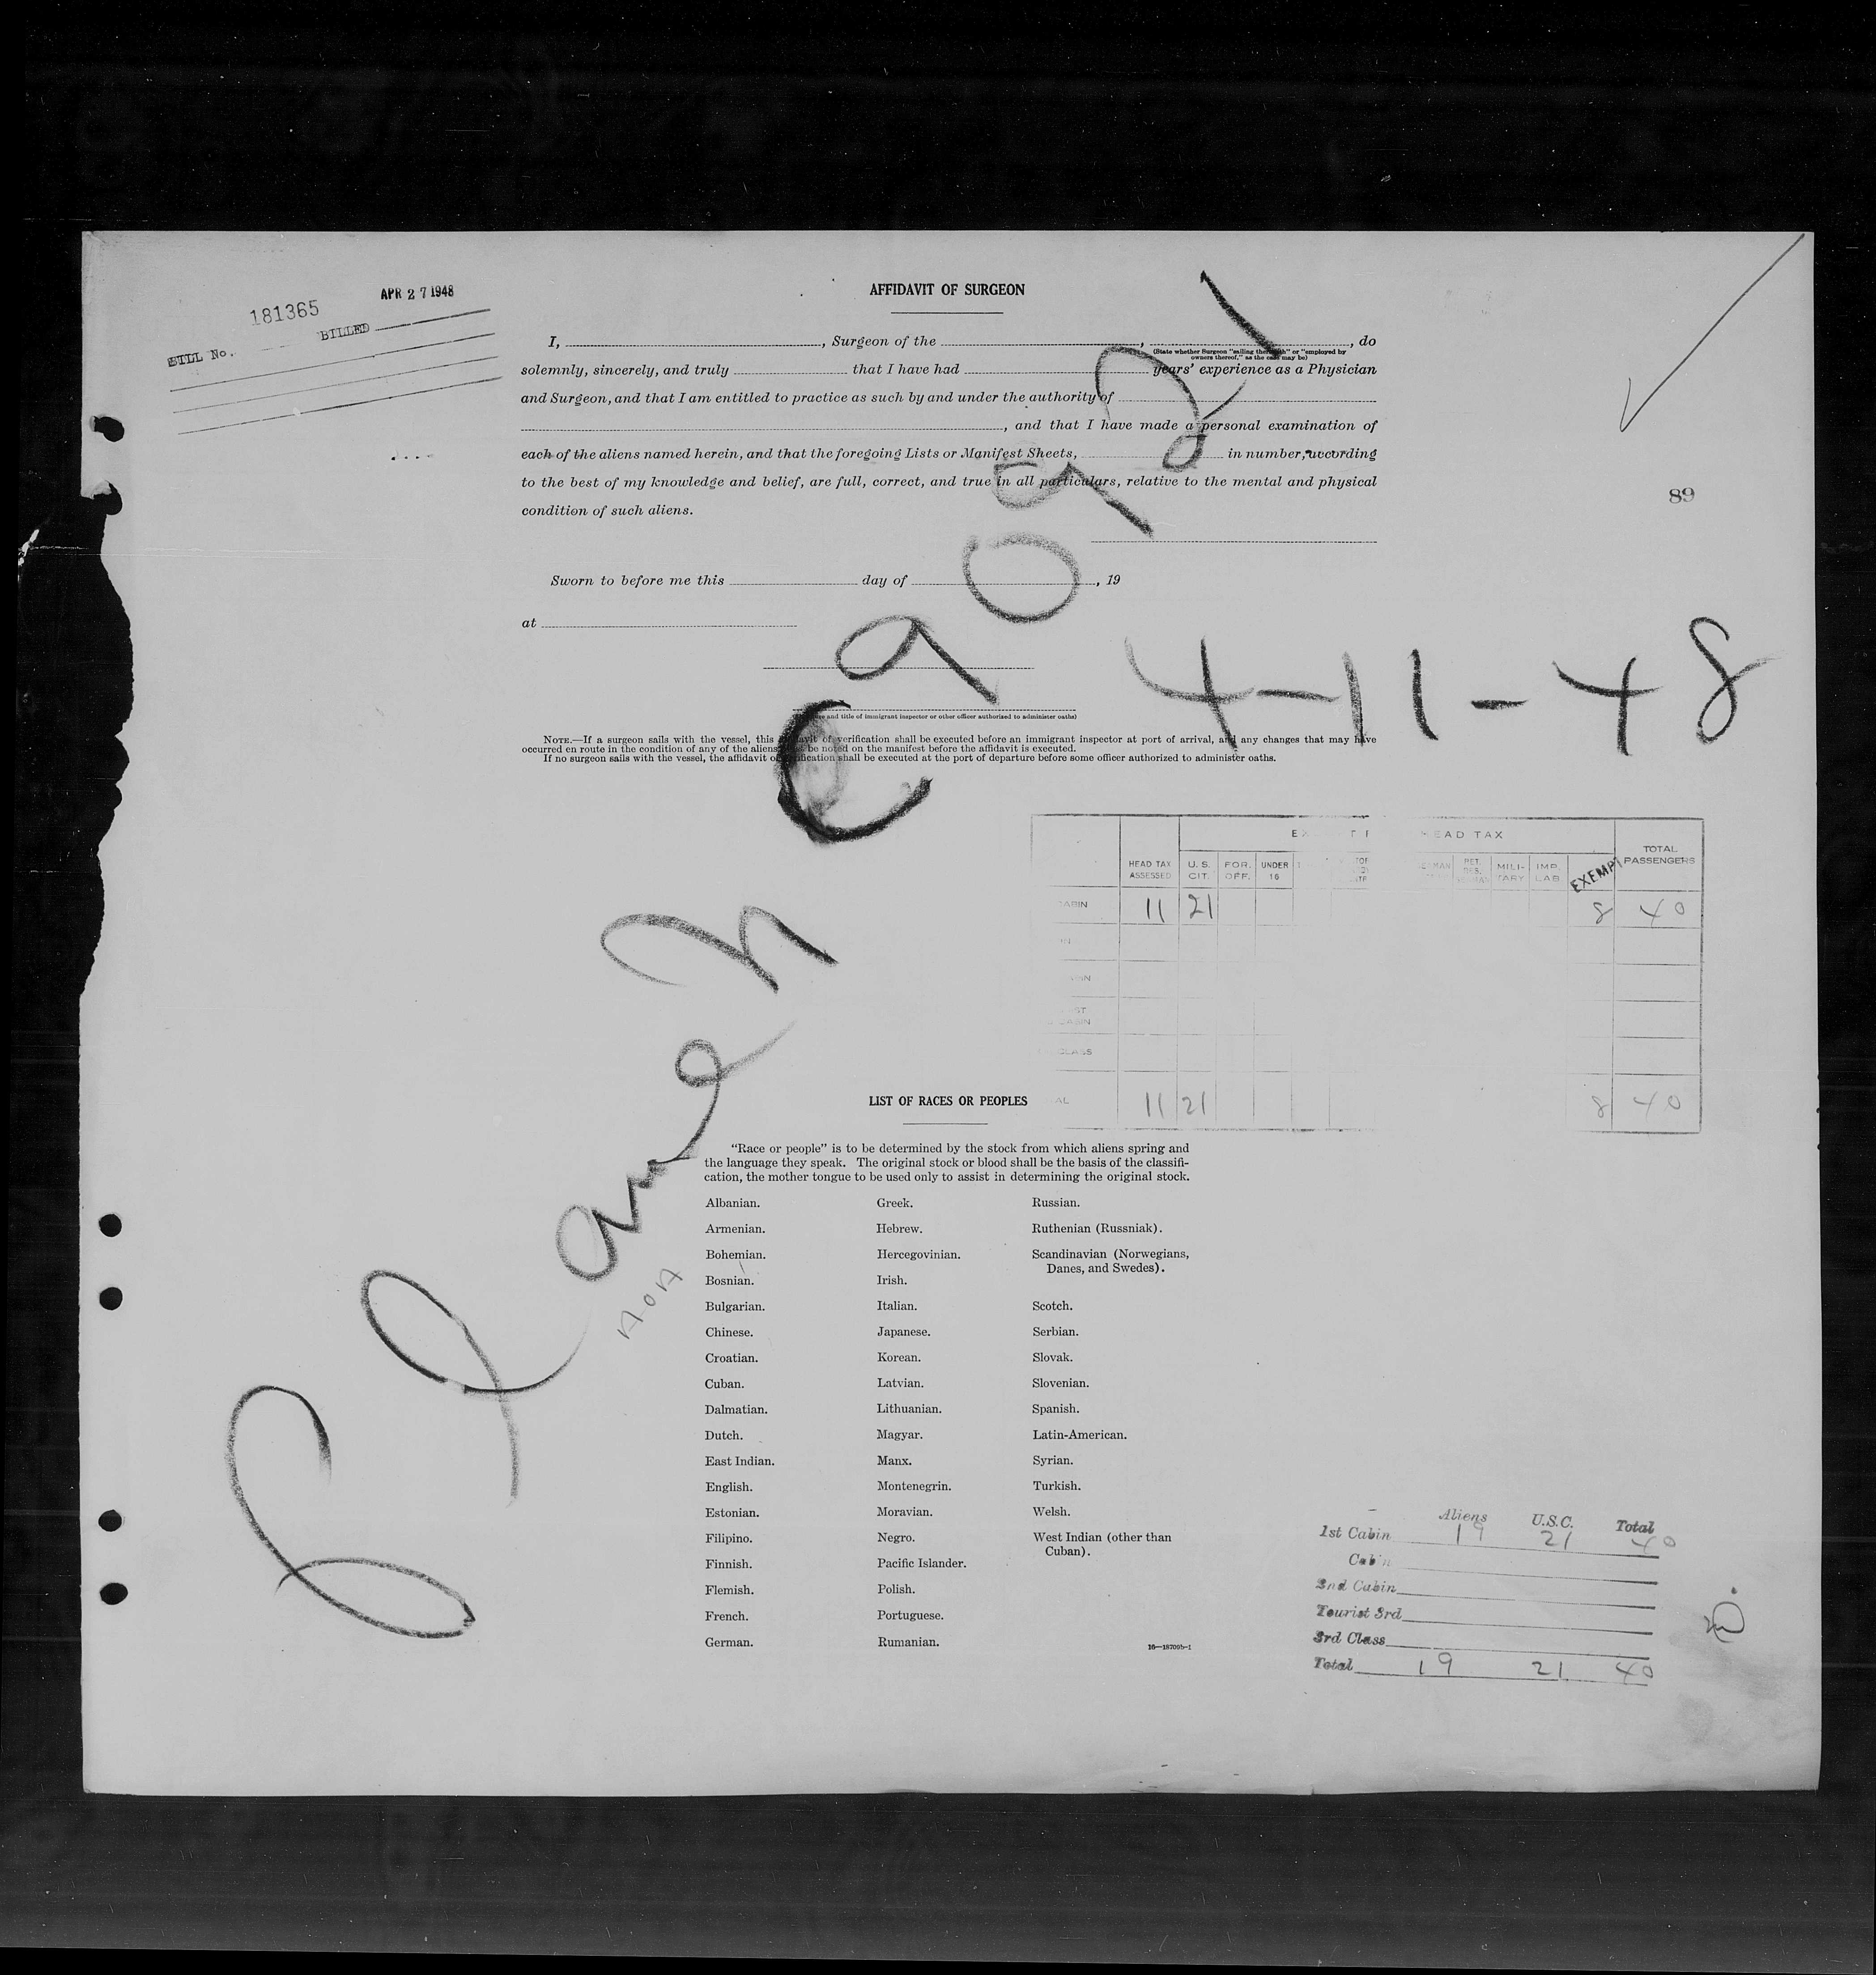 181365
APR 27 1948
BILL No.
BILLED
AFFIDAVIT OF SURGEON
I, , Surgeon of the , , do
(State whether Surgeon "sailing therewith" or "employed by
owners thereof," as the case may be)
solemnly, sincerely, and truly that I have had years' experience as a Physician
and Surgeon, and that I am entitled to practice as such by and under the authority of
, and that I have made a personal examination of
each of the aliens named herein, and that the foregoing Lists or Manifest Sheets, in number, according
to the best of my knowledge and belief, are full, correct, and true in all particulars, relative to the mental and physical
condition of such aliens.
89
Sworn to before me this day of , 19
at
4-11-48
and title of immigrant inspector or other officer authorized to administer oaths)
NOTE.—If a surgeon sails with the vessel, this affidavit of verification shall be executed before an immigrant inspector at port of arrival, and any changes that may have
occurred en route in the condition of any of the aliens be noted on the manifest before the affidavit is executed.
If no surgeon sails with the vessel, the affidavit of verification shall be executed at the port of departure before some officer authorized to administer oaths.
HEAD TAX
HEAD TAX ASSESSED U. S. CIT. FOR. OFF. UNDER 16 MILI-TARY IMP. LAB. EXEMPT TOTAL PASSENGERS
CABIN 11 21 8 40
11 21 8 40
LIST OF RACES OR PEOPLES
"Race or people" is to be determined by the stock from which aliens spring and
the language they speak. The original stock or blood shall be the basis of the classifi-
cation, the mother tongue to be used only to assist in determining the original stock.
Albanian. Greek. Russian.
Armenian. Hebrew. Ruthenian (Russniak).
Bohemian. Hercegovinian. Scandinavian (Norwegians,
Danes, and Swedes).
Bosnian. Irish.
Bulgarian. Italian. Scotch.
Chinese. Japanese. Serbian.
Croatian. Korean. Slovak.
Cuban. Latvian. Slovenian.
Dalmatian. Lithuanian. Spanish.
Dutch. Magyar. Latin-American.
East Indian. Manx. Syrian.
English. Montenegrin. Turkish.
Estonian. Moravian. Welsh.
Filipino. Negro. West Indian (other than
Cuban).
Finnish. Pacific Islander.
Flemish. Polish.
French. Portuguese.
German. Rumanian.
16—18700b-1
AOA
Aliens U.S.C. Total
1st Cabin 19 21 40
Cabin
2nd Cabin
Tourist 3rd
3rd Class
Total 19 21 40